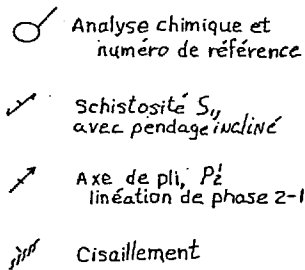 Analyse chimique et
numéro de référence
Schistosité S₁,
avec pendage incliné
Axe de pli, P₂¹
linéation de phase 2-1
Cisaillement